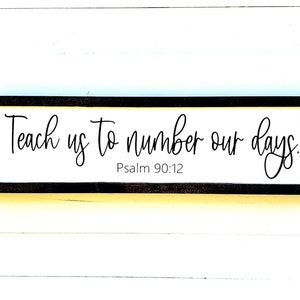 Teach us to number our days.
Psalm 90:12